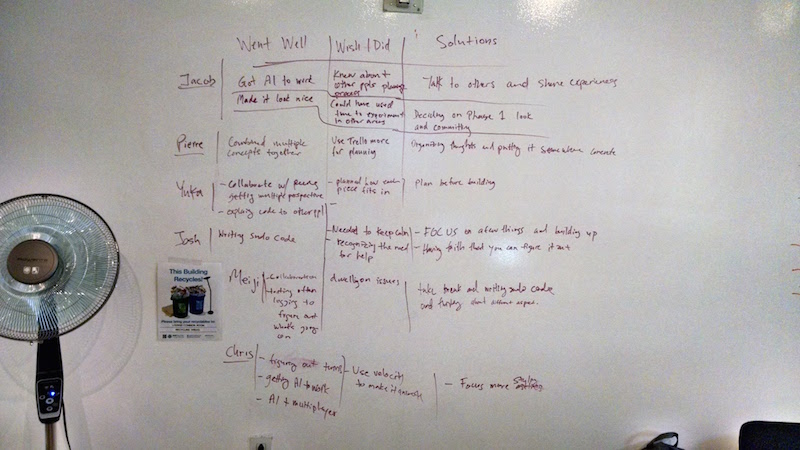 Went Well
Wish I Did
Solutions
Jacob
Got AI to work
Knew about
other ppls planning
process
Talk to others and share experiences
Made it look nice
Could have used
time to experiment
in other areas
Deciding on Phase 1 look
and committing
Pierre
Combined multiple
concepts together
Use Trello more
for planning
Organizing thoughts and putting it somewhere concrete
Yuka
- Collaborate w/ peers,
getting multiple perspective
- explaing code to other ppl
- planned how each
piece fits in
-
Plan before building
Josh
Writing Sudo Code
- Needed to keep calm
- recognizing the need
for help
- FOCUS on a few things and building up
- Having faith that you can figure it out
Meiji
- Collaboration
testing often
logging to
figure out
whats going
on
dwelling on issues
take break and writing sudo code
and thinking about different
This Building
Recycles!
Chris
- figuring out turns
- getting AI to work
- AI + multiplayer
- Use velocity
to make it
- Focus more